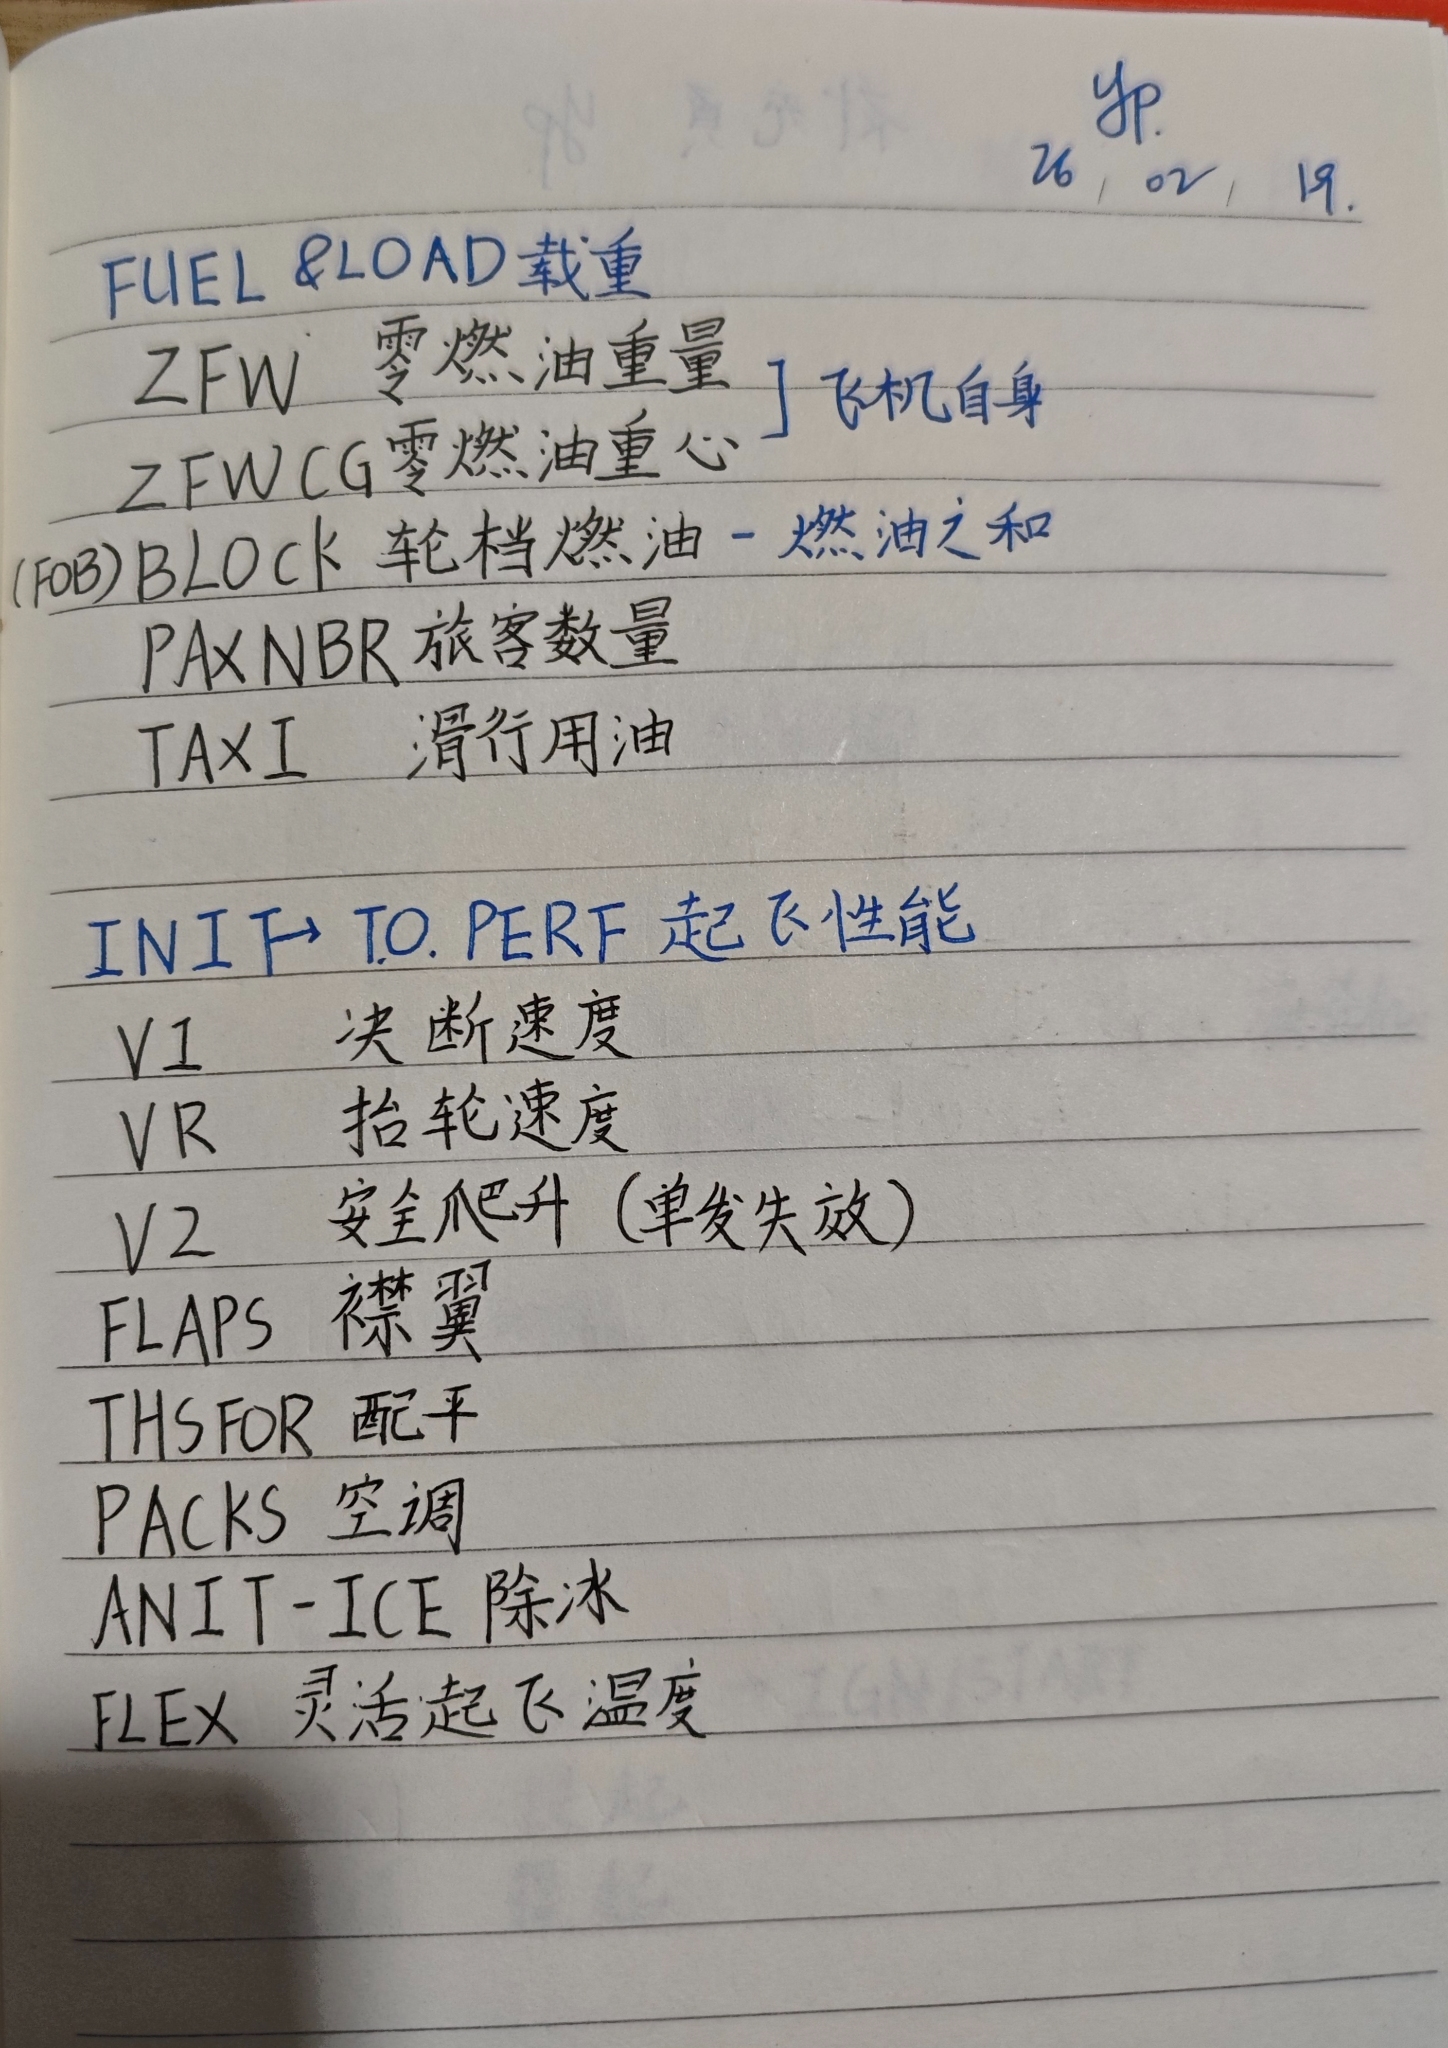 yp.
26, 02, 19.
FUEL &LOAD 载重
ZFW 零燃油重量
ZFWCG 零燃油重心 ] 飞机自身
(FOB) BLOCK 轮档燃油 - 燃油之和
PAXNBR 旅客数量
TAXI 滑行用油
INIT→ T.O. PERF 起飞性能
V1 决断速度
VR 抬轮速度
V2 安全爬升 (单发失效)
FLAPS 襟翼
THSFOR 配平
PACKS 空调
ANIT-ICE 除冰
FLEX 灵活起飞温度